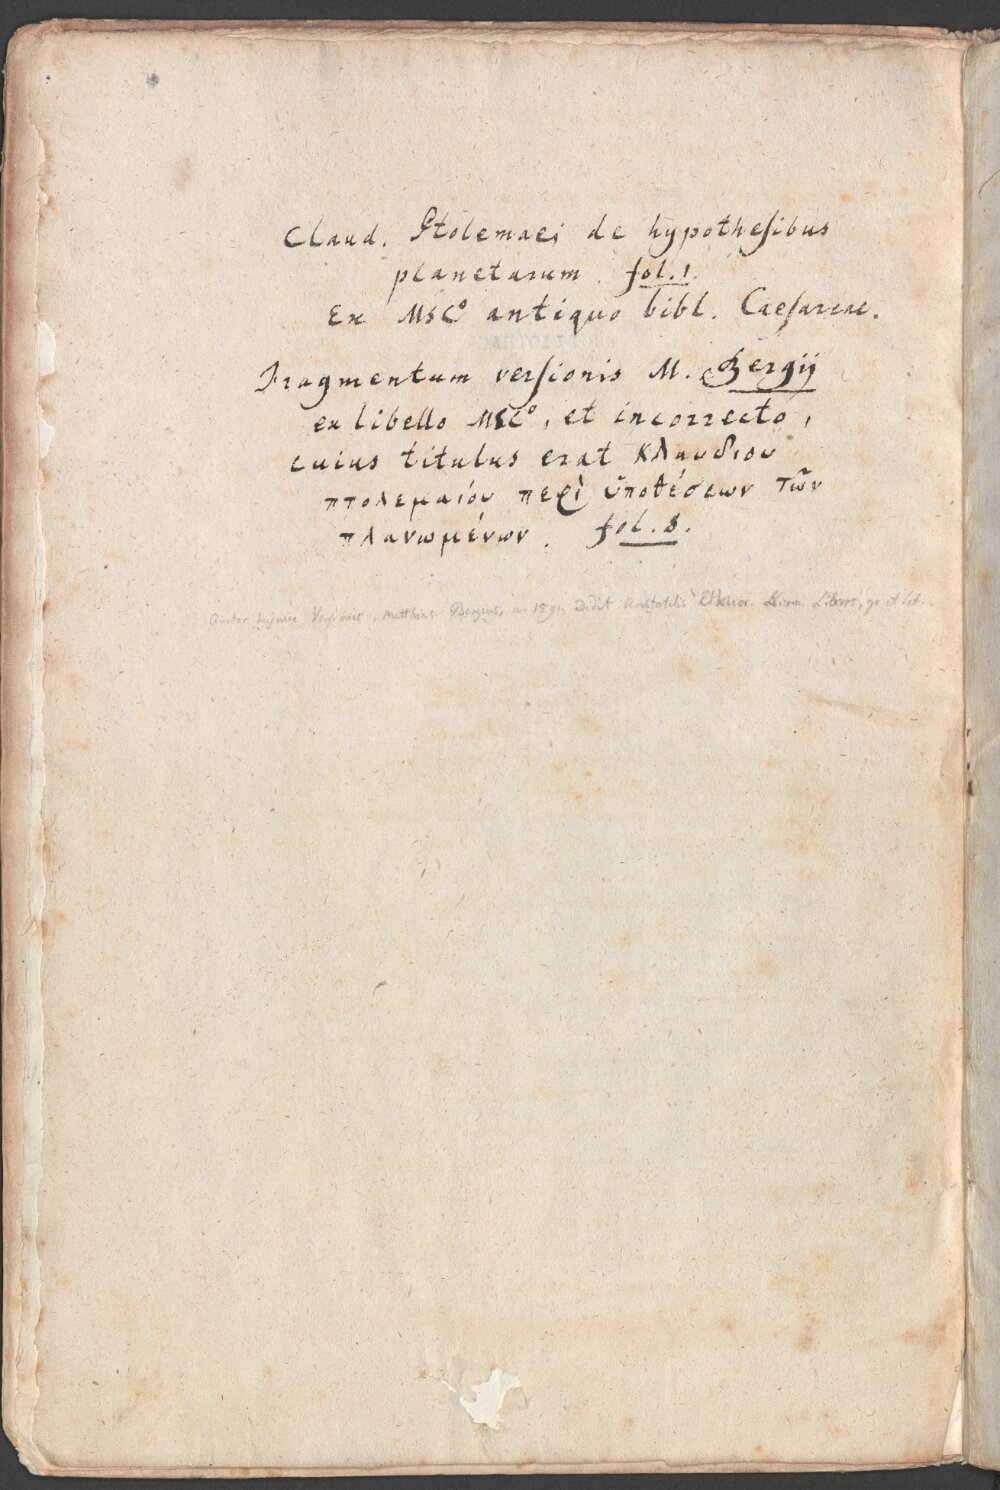 Claud. Ptolemaei de hypotheſibus
planetarum. fol. 1.
Ex MSC⁰ antiquo bibl. Caeſareae.
Fragmentum verſionis M. Bergij
ex libello MSC⁰, et incorrecto,
cuius titulus erat Κλαυδίου
πτολεμαίου περὶ ὑποθέσεων τῶν
πλανωμένων. fol. 8.
Auctor hujusce Versionis, Matthias Bergius, an. 1591. Edidit Aristotelis Ethicor. Nicom. Libros, gr et lat.